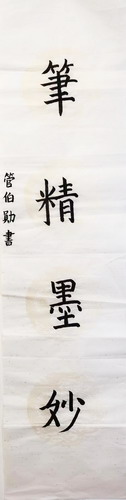 筆精墨妙
管伯勛書